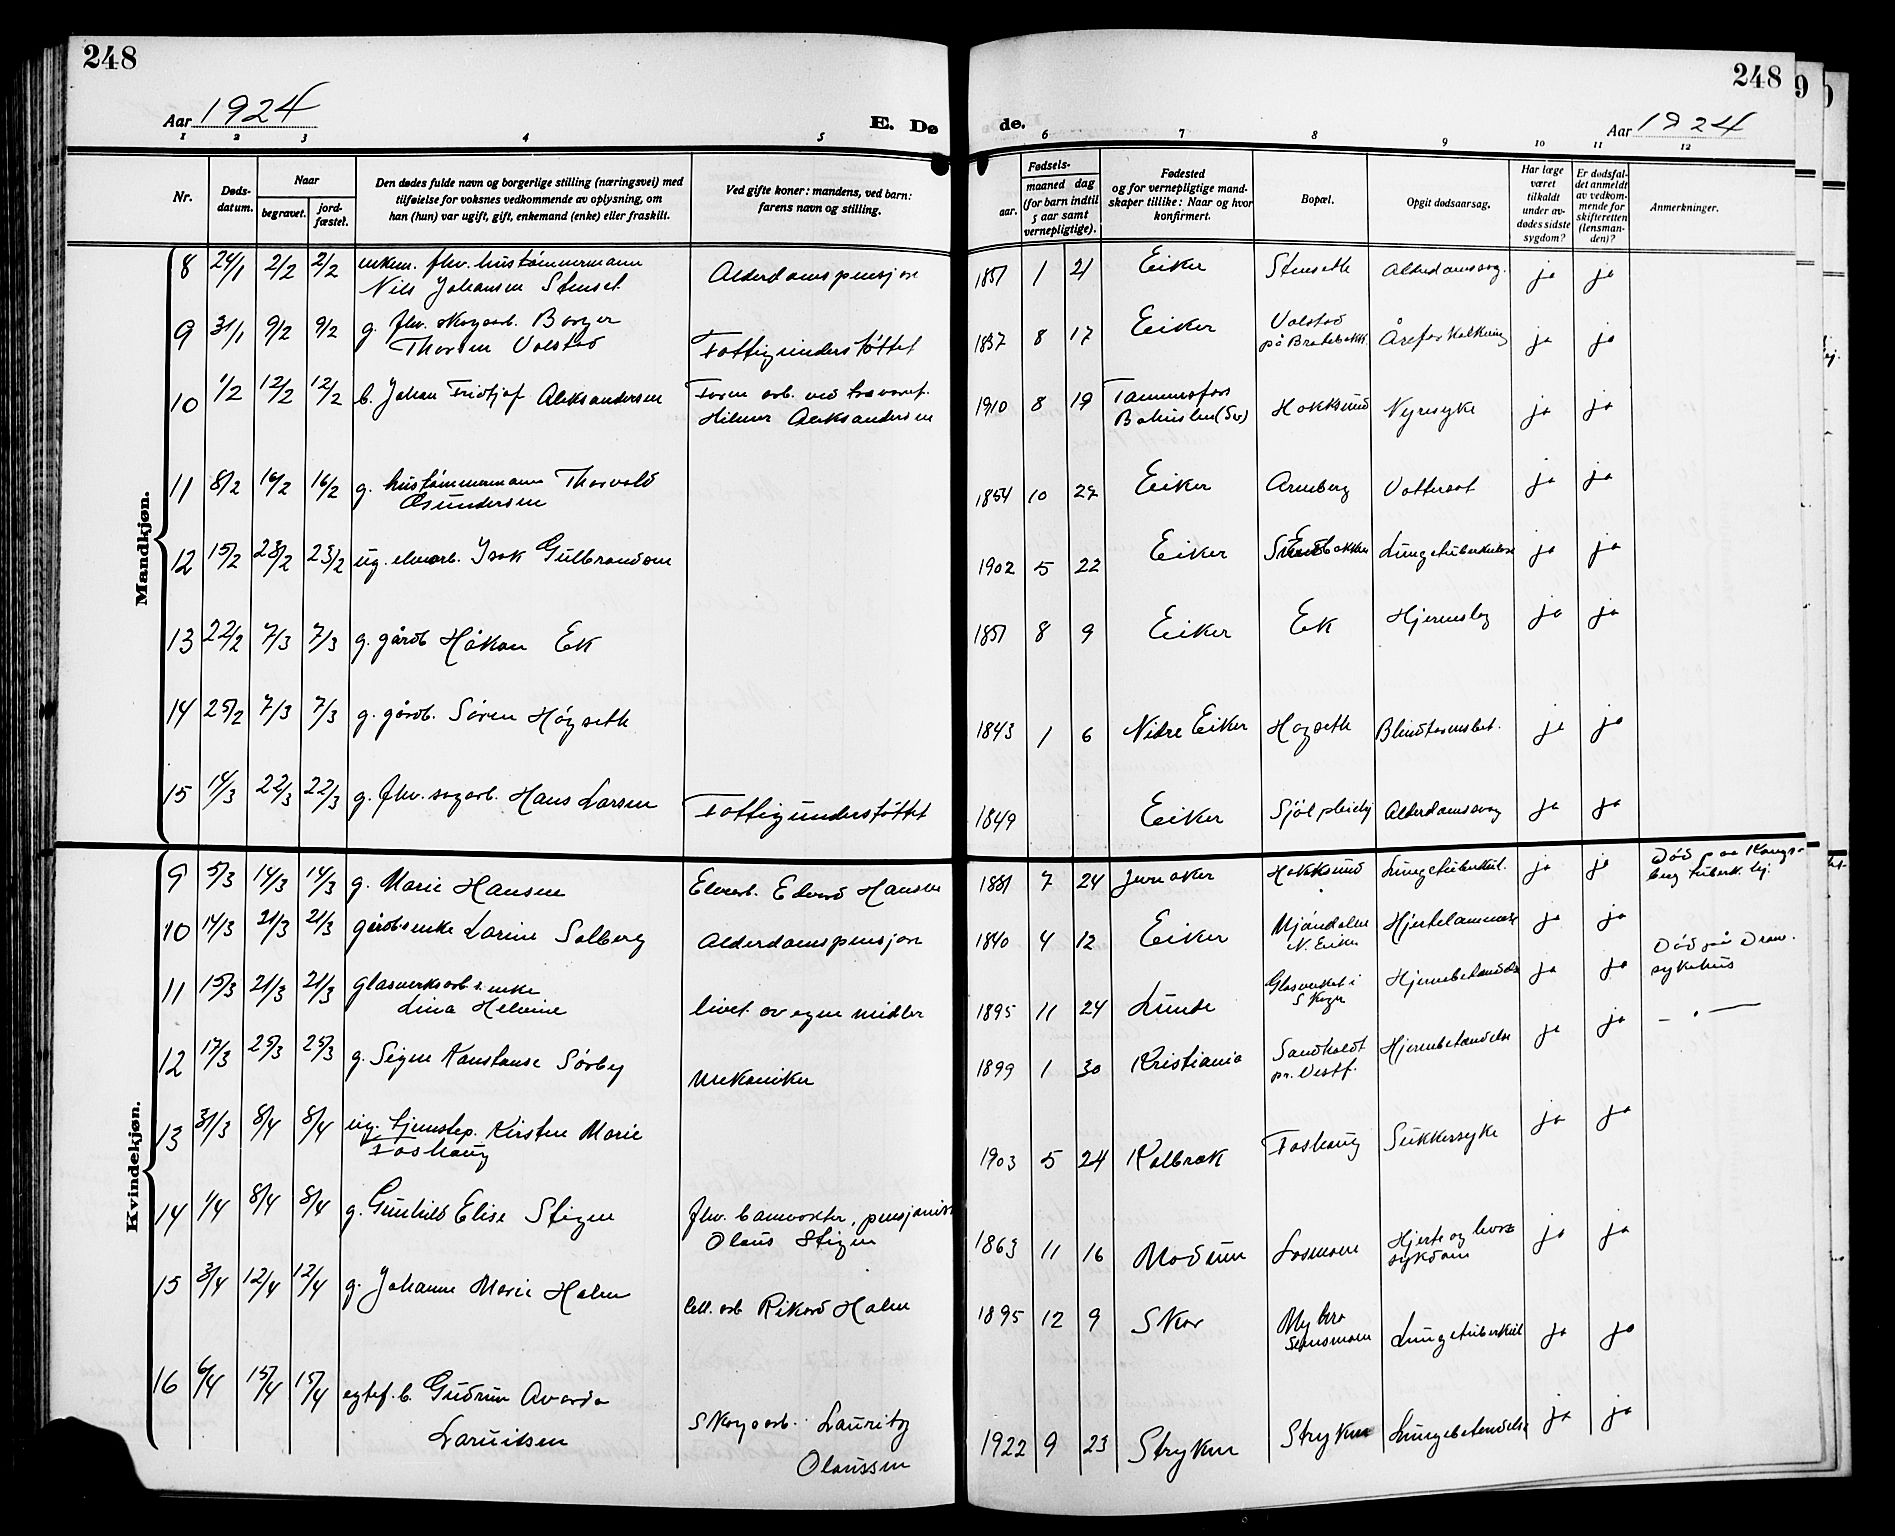 248
248
9
Aar 1924
E. Dø
de.
Aar 1924
1 2 3 4 5
6 7 8 9 10 11 12
Nr.
Døds-
datum.
Naar
begravet.
jord-
fæstet.
Den dødes fulde navn og borgerlige stilling (næringsvei) med
tilføielse for voksnes vedkommende av oplysning, om
han (hun) var ugift, gift, enkemand (enke) eller fraskilt.
Ved gifte koner: mandens, ved barn:
farens navn og stilling.
Fødsels-
aar.
maaned dag
(for barn indtil
5 aar samt
vernepligtige).
Fødested
og for vernepligtige mand-
skaper tillike: Naar og hvor
konfirmert.
Bopæl.
Opgit dødsaarsag.
Har læge
været
tilkaldt
under av-
dødes sidste
sygdom?
Er dødsfal-
det anmeldt
av vedkom-
mende for
skifteretten
(lensman-
den)?
Anmerkninger.
Mandkjøn.
8 24/1 2/2 2/2 enkem. fhv. hustømmermann
Nils Johansen Stenset Alderdomspensjon 1851 1 21 Eiker Stenseth Alderdomssvag. ja ja
9 31/1 9/2 9/2 g. fhv. skogarb. Borger
Thorsen Volstad Fattigunderstøttet 1837 8 17 Eiker Volstad
på Bratebekk Åreforkalkning ja ja
10 1/2 12/2 12/2 b. Johan Fridtjof Aleksandersen Faren arb. ved
Hilmer Aleksandersen 1910 8 19 Tannumsfors
Bohuslen (Sv) Hokksund Nyresyke ja ja
11 8/2 16/2 16/2 g. hustømmermann Thorvald
Gundersen 1854 10 22 Eiker Arnberg Vattersot ja ja
12 15/2 23/2 23/2 ug. elvearb. Isak Gulbrandsen 1902 5 22 Eiker Lungetuberkulose ja ja
13 22/2 7/3 7/3 g. gårdb Håkon Ek 1851 8 9 Eiker Ek Hjerneslag ja ja
14 25/2 7/3 7/3 g. gårdb. Søren Høgseth 1843 1 6 Nedre Eiker Hogseth Blindtarmsbet. ja ja
15 14/3 22/3 22/3 g. fhv. sagarb. Hans Larsen Fattigunderstøttet 1849 Eiker Alderdomssvag ja ja
Kvindekjøn.
9 5/3 14/3 14/3 g. Marie Hansen Elvearb. Edvard Hansen 1881 7 24 Jevnaker Hokksund Lungetuberkul. ja ja Død paa Kongs-
berg tuberk. hj.
10 14/3 21/3 21/3 gårdb.enke Larine Solberg Alderdomspensjon 1840 4 12 Eiker Mjøndalen
N. Eiker Hjertelammelse ja ja
11 15/3 21/3 21/3 glasverksarb.s enke
Lina Helvine livet av egne midler 1895 11 24 Lunde Glasverket i
Skogr Hjernebetendelse ja ja Død på Dram.
sykehus
12 17/3 25/3 25/3 g. Signe Konstanse Sørby Mekaniker 1899 1 30 Kristiania Sandholdt
pr. Vestf. Hjernebetendelse ja ja — " —
13 31/3 8/4 8/4 ug. tjenstep. Kirsten Marie
Foshaug 1903 5 24 Kolbrek Foshaug Sukkersyke ja ja
14 1/4 8/4 8/4 g. Gunhild Elise Stigen fhv. banevokter, pensjonist
Olaus Stigen 1863 11 16 Modum Losmoen Hjerte og
sykdom ja ja
15 3/4 12/4 12/4 g. Johanne Marie Holen Cell. arb Rikard Holen 1895 12 9 Skor Lungetuberkul ja ja
16 6/4 15/4 15/4 egtef. b. Gudrun Avarda
Lauritsen Skogsarb. Lauritz
Olaussen 1922 9 23 Stryken Stryken Lungebetendelse ja ja